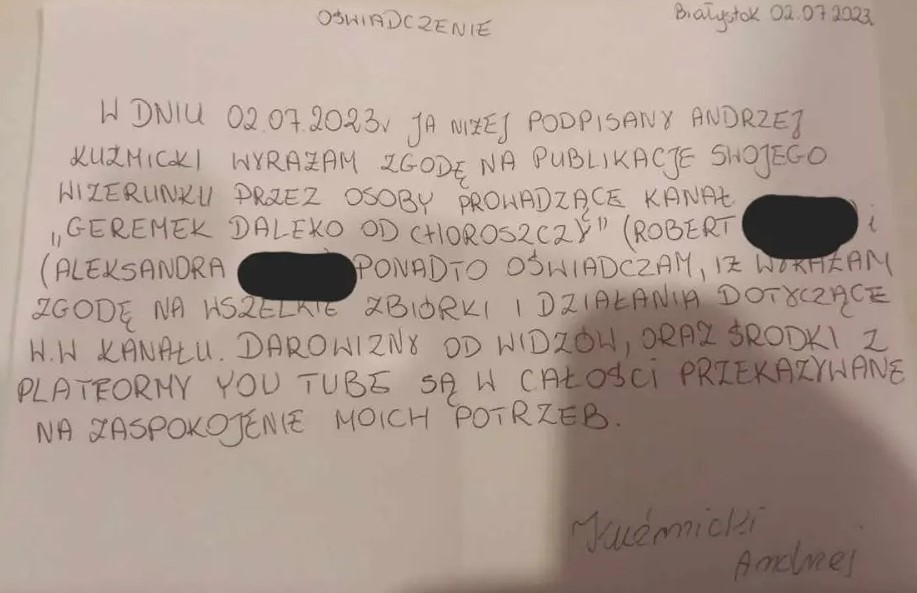 OŚWIADCZENIE
Białystok 02.07.2023
W DNIU 02.07.2023r JA NIŻEJ PODPISANY ANDRZEJ
KUŹMICKI WYRAŻAM ZGODĘ NA PUBLIKACJĘ SWOJEGO
WIZERUNKU PRZEZ OSOBY PROWADZĄCE KANAŁ
„GEREMEK DALEKO OD CHOROSZCZY" (ROBERT i
(ALEKSANDRA PONADTO OŚWIADCZAM, IŻ WYRAŻAM
ZGODĘ NA WSZELKIE ZBIÓRKI I DZIAŁANIA DOTYCZĄCE
W.W KANAŁU. DAROWIZNY OD WIDZÓW, ORAZ ŚRODKI Z
PLATFORMY YOU TUBE SĄ W CAŁOŚCI PRZEKAZYWANE
NA ZASPOKOJENIE MOICH POTRZEB.
Kuźmicki
Andrzej